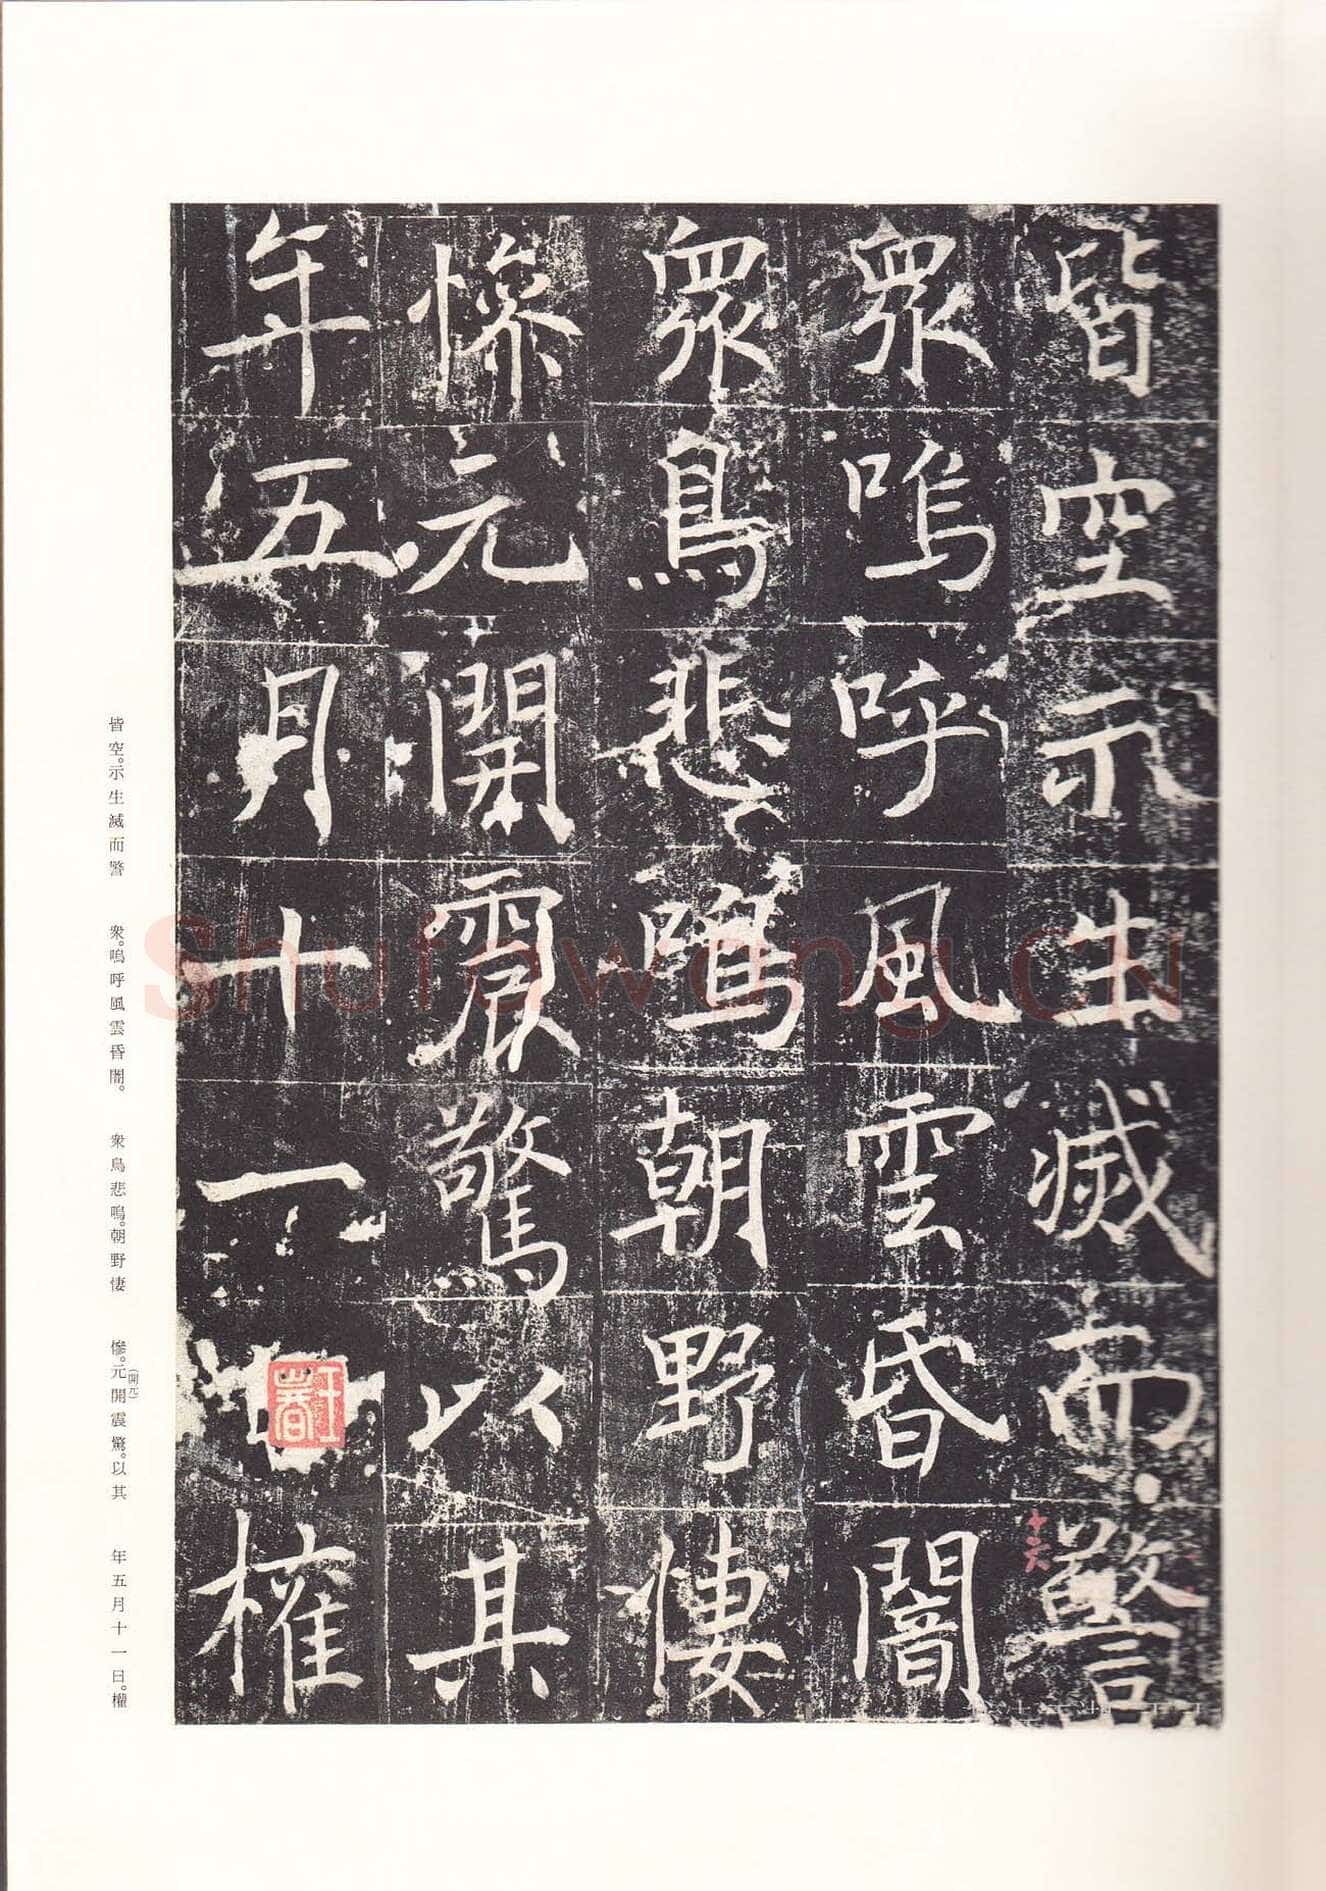 皆空示生滅而警
衆嗚呼風雲昏闇
衆鳥悲鳴朝野悽
慘元開震驚以其
年五月十一日權
十六
皆空。示生滅而警
衆。嗚呼風雲昏闇。
衆鳥悲鳴。朝野悽
慘。元開震驚。以其
(開元)
年五月十一日。權
Shufawang.CN